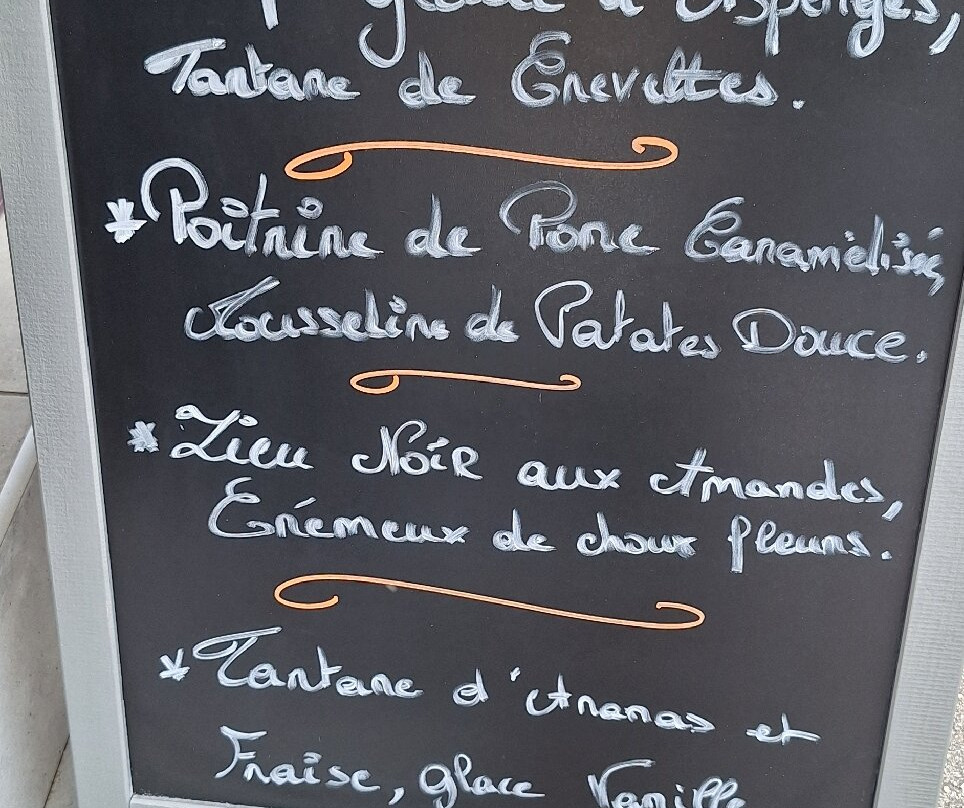 glacé d'Asperges,
Tartare de Crevettes.
*Poitrine de Porc Caramélisé,
Mousseline de Patates Douce.
*Lieu Noir aux Amandes,
Crémeux de choux fleurs.
*Tartare d'Ananas et
Fraise, glace Vanille